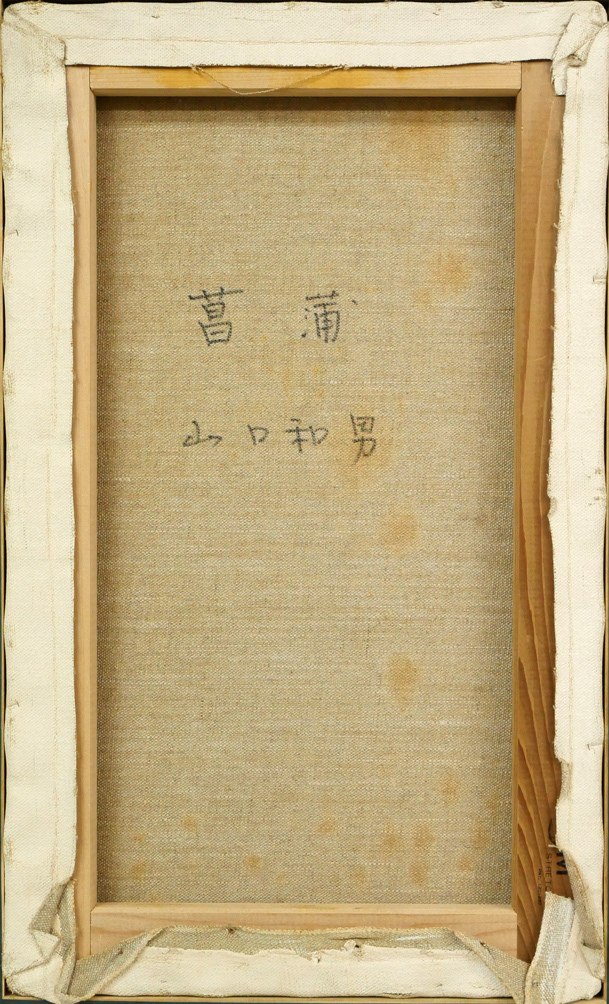 菖蒲
山口和男